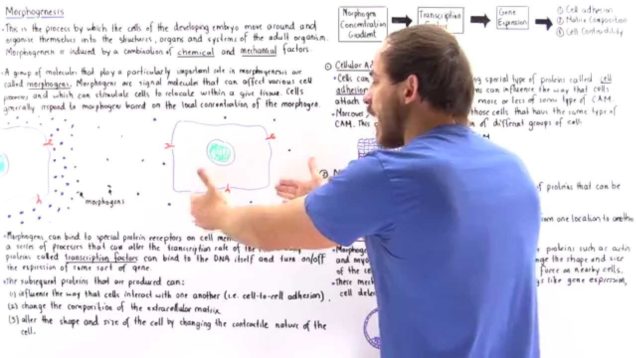 Morphogenesis
• This is the process by which the cells of the developing embryo move around and
organize themselves into the structures, organs and systems of the adult organism.
Morphogenesis is induced by a combination of chemical and mechanical factors
• A group of molecules that play a particularly important role in morphogenesis are
called morphogens. Morphogens are signal molecules that can affect various cell
process and which can stimulate cells to relocate within a give tissue. Cells
generally respond to morphogens based on the local concentration of the morphogen.
morphogens
• Morphogens can bind to special protein receptors on cell
a series of processes that can alter the transcription rate of the
proteins called transcription factors can bind to the DNA itself and turn on/off
the expression of some sort of gene.
• The subsequent proteins that are produced can:
(1) influence the way that cells interact with one another (i.e. cell-to-cell adhesion)
(2) change the composition of the extracellular matrix
(3) alter the shape and size of the cell by changing the contractile nature of the
cell.
Morphogen
Concentration
Gradient
Transcription
Gene
Expression
① Cell adhesion
② Matrix Composition
③ Cell Contractility
① Cellular
• Cells can
ing special type of proteins called cell
adhesion
can influence the way that cells
attach
more or less of some type of CAM
• Moreover,
those cells that have the same type of
CAM. This
of different groups of cell.
of proteins that can be
from one location to another
• Morphogen
proteins such as actin
and
nge the shape and size
of the ce
force on nearby cells.
• These mech
gs like gene expression,
cell